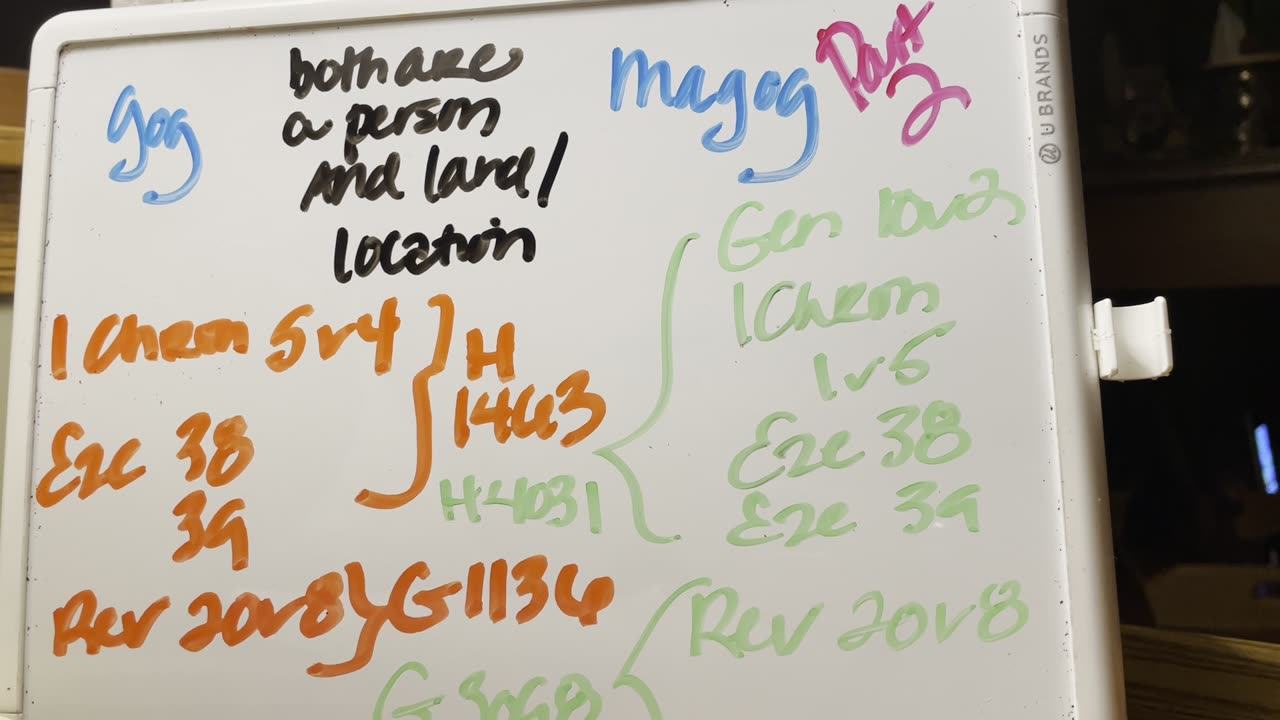 Gog
both are
a person
And land/
location
Magog
Part
2
U BRANDS
1 Chron 5v4
Eze 38
39
H
1463
H4031
Gen 10v2
1Chron
1v5
Eze 38
Eze 39
Rev 20v8
G1136
Rev 20v8
G3098